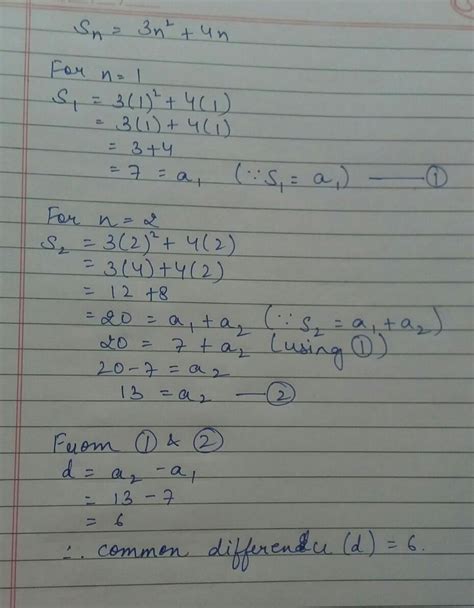 Sn = 3n² + 4n
For n = 1
S₁ = 3(1)² + 4(1)
= 3(1) + 4(1)
= 3+4
= 7 = a₁ (∵S₁ = a₁) —— ①
For n = 2
S₂ = 3(2)² + 4(2)
= 3(4)+4(2)
= 12 +8
= 20 = a₁ + a₂ (∵ S₂ = a₁ + a₂)
20 = 7 + a₂ (using ①)
20 - 7 = a₂
13 = a₂ —— ②
From ① & ②
d = a₂ - a₁
= 13 - 7
= 6
∴ common difference (d) = 6.